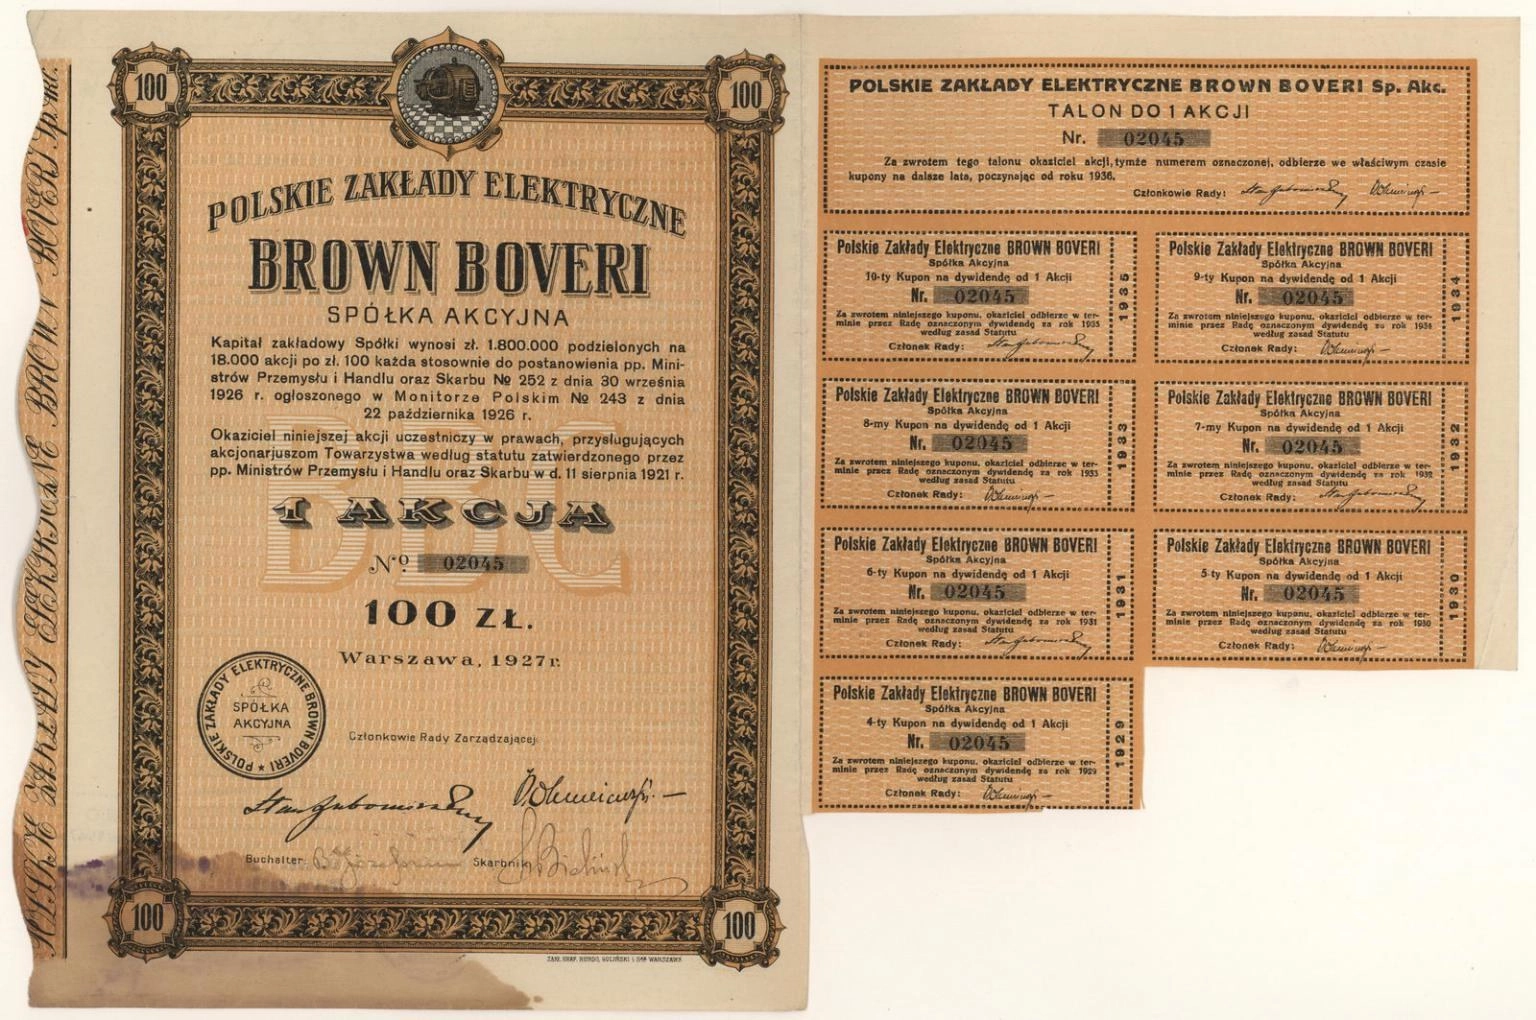 100
100
POLSKIE ZAKŁADY ELEKTRYCZNE
BROWN BOVERI
SPÓŁKA AKCYJNA
Kapitał zakładowy Spółki wynosi zł. 1.800.000 podzielonych na
18.000 akcji po zł. 100 każda stosownie do postanowienia pp. Mini-
strów Przemysłu i Handlu oraz Skarbu № 252 z dnia 30 września
1926 r. ogłoszonego w Monitorze Polskim № 243 z dnia
22 października 1926 r.
Okaziciel niniejszej akcji uczestniczy w prawach, przysługujących
akcjonarjuszom Towarzystwa według statutu zatwierdzonego przez
pp. Ministrów Przemysłu i Handlu oraz Skarbu w d. 11 sierpnia 1921 r.
1 AKCJA
№ 02045
100 ZŁ.
Warszawa, 1927 r.
POLSKIE ZAKŁADY ELEKTRYCZNE BROWN BOVERI
SPÓŁKA
AKCYJNA
Członkowie Rady Zarządzającej:
Buchalter: Skarbnik
100
100
ZAKŁ. GRAF. WARSZAWA
ZAKŁADY ELEKTRYCZNE BROWN BOVERI Sp. Akc.
POLSKIE ZAKŁADY ELEKTRYCZNE BROWN BOVERI Sp. Akc.
TALON DO 1 AKCJI
Nr. 02045
Za zwrotem tego talonu okaziciel akcji, tymże numerem oznaczonej, odbierze we właściwym czasie
kupony na dalsze lata, poczynając od roku 1936.
Członkowie Rady:
Polskie Zakłady Elektryczne BROWN BOVERI
Spółka Akcyjna
10-ty Kupon na dywidendę od 1 Akcji
Nr. 02045
Za zwrotem niniejszego kuponu, okaziciel odbierze w ter-
minie przez Radę oznaczonym dywidendę za rok 1935
według zasad Statutu
Członek Rady:
1935
Polskie Zakłady Elektryczne BROWN BOVERI
Spółka Akcyjna
9-ty Kupon na dywidendę od 1 Akcji
Nr. 02045
Za zwrotem niniejszego kuponu, okaziciel odbierze w ter-
minie przez Radę oznaczonym dywidendę za rok 1934
według zasad Statutu
Członek Rady:
1934
Polskie Zakłady Elektryczne BROWN BOVERI
Spółka Akcyjna
8-my Kupon na dywidendę od 1 Akcji
Nr. 02045
Za zwrotem niniejszego kuponu, okaziciel odbierze w ter-
minie przez Radę oznaczonym dywidendę za rok 1933
według zasad Statutu
Członek Rady:
1933
Polskie Zakłady Elektryczne BROWN BOVERI
Spółka Akcyjna
7-my Kupon na dywidendę od 1 Akcji
Nr. 02045
Za zwrotem niniejszego kuponu, okaziciel odbierze w ter-
minie przez Radę oznaczonym dywidendę za rok 1932
według zasad Statutu
Członek Rady:
1932
Polskie Zakłady Elektryczne BROWN BOVERI
Spółka Akcyjna
6-ty Kupon na dywidendę od 1 Akcji
Nr. 02045
Za zwrotem niniejszego kuponu, okaziciel odbierze w ter-
minie przez Radę oznaczonym dywidendę za rok 1931
według zasad Statutu
Członek Rady:
1931
Polskie Zakłady Elektryczne BROWN BOVERI
Spółka Akcyjna
5-ty Kupon na dywidendę od 1 Akcji
Nr. 02045
Za zwrotem niniejszego kuponu, okaziciel odbierze w ter-
minie przez Radę oznaczonym dywidendę za rok 1930
według zasad Statutu
Członek Rady:
1930
Polskie Zakłady Elektryczne BROWN BOVERI
Spółka Akcyjna
4-ty Kupon na dywidendę od 1 Akcji
Nr. 02045
Za zwrotem niniejszego kuponu, okaziciel odbierze w ter-
minie przez Radę oznaczonym dywidendę za rok 1929
według zasad Statutu
Członek Rady:
1929